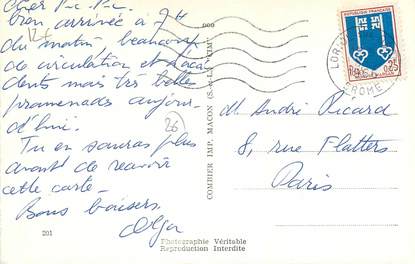 Cher P-c. P-c.
bien arrivée à 7H
du matin, beaucoup
de circulation et d'acci
dents mais très belle
promenade aujour
d'hui.
Tu en sauras plus
avant de recevoir
cette carte -
Bons baisers.
Olga
12F
26
201
000
COMBIER IMP. MACON (S.-&-L.) "CIM"
Photographie Véritable
Reproduction Interdite
REPUBLIQUE FRANÇAISE
0,25
MONT-DE-MARSAN
DROME
M. André Picard
8, rue Flatters
Paris